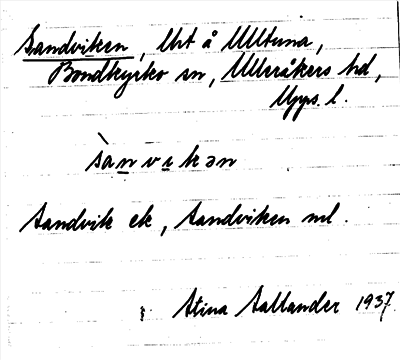 Sandviken, lht å Ultuna,
Bondkyrko sn, Ulleråkers hd,
Upps. l.
sànvikən
Sandvik ek, Sandviken ml.
Stina Sallander 1937